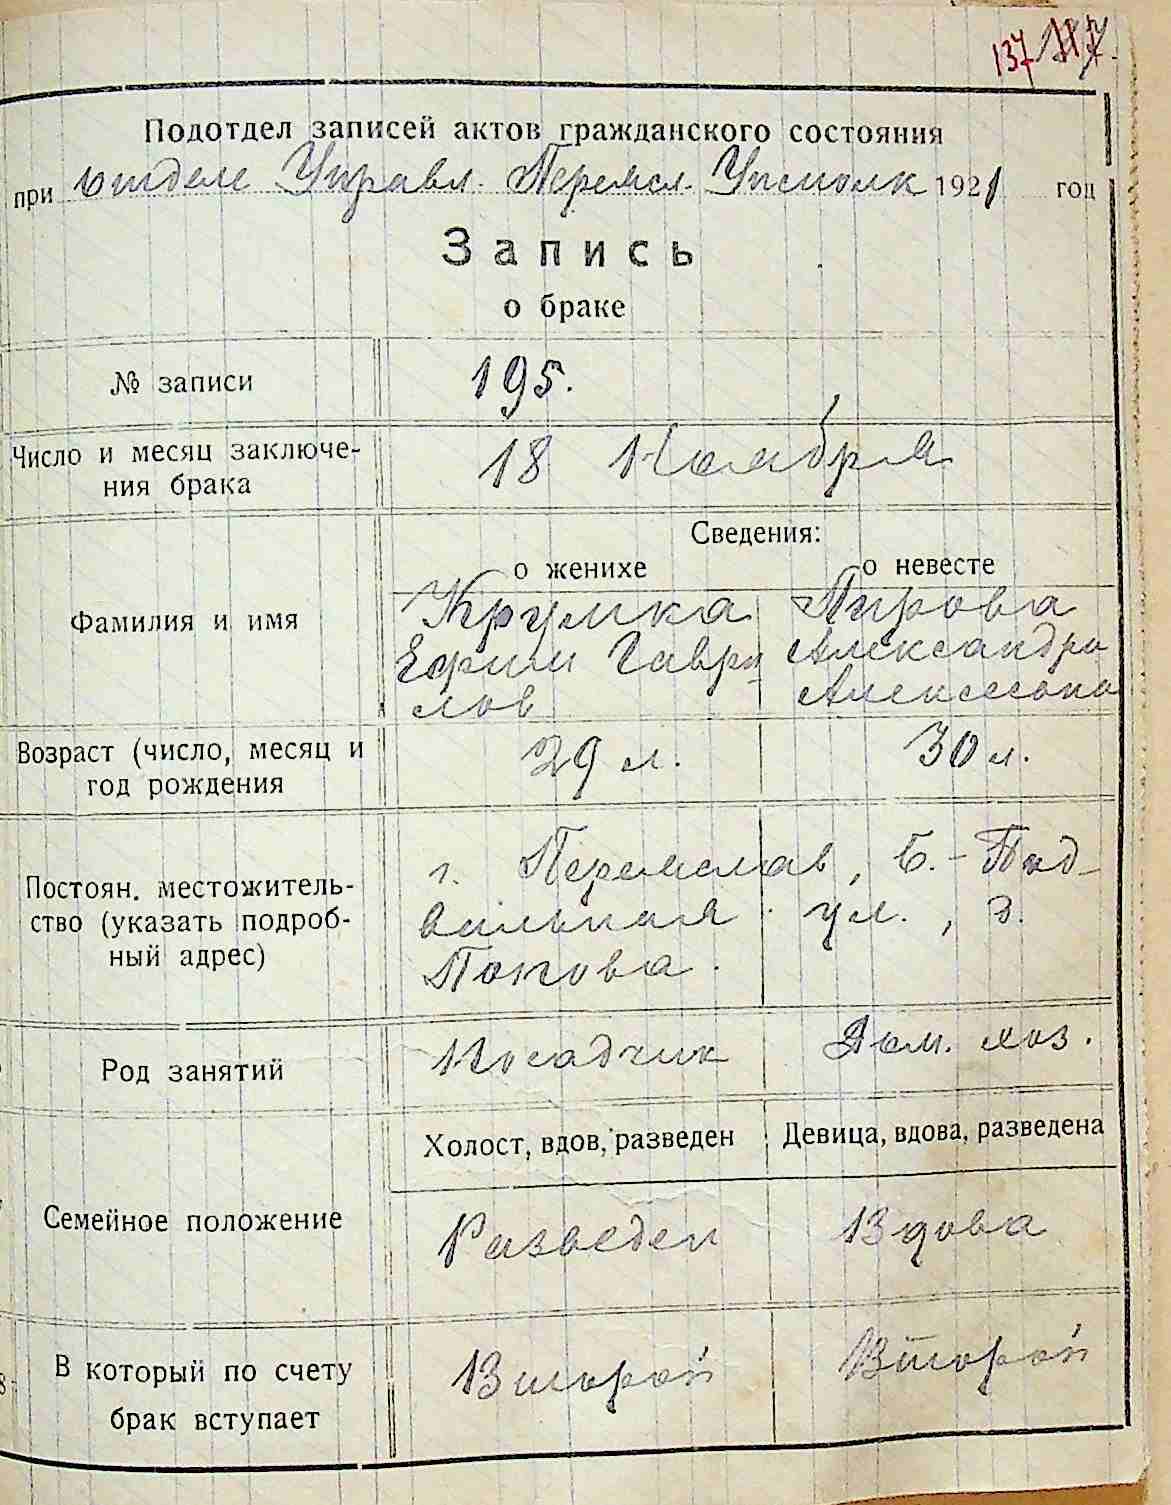 137
Подотдел записей актов гражданского состояния
при отделе Управл. Переясл. Уисполк 1921 год
Запись
о браке
№ записи 195.
Число и месяц заключе-
ния брака
18 Ноября
Сведения:
о женихе о невесте
Фамилия и имя
Крумка
Ефим Гаври
лов
Пирова
Александра
Алексеевна
Возраст (число, месяц и
год рождения
29 л. 30 л.
Постоян. местожитель-
ство (указать подроб-
ный адрес)
г. Переяслав, Б.-Под-
вальная ул., д.
Попова.
Род занятий
Посадчик Дом. хоз.
Холост, вдов, разведен Девица, вдова, разведена
Семейное положение
Разведен Вдова
В который по счету
брак вступает
Второй Второй